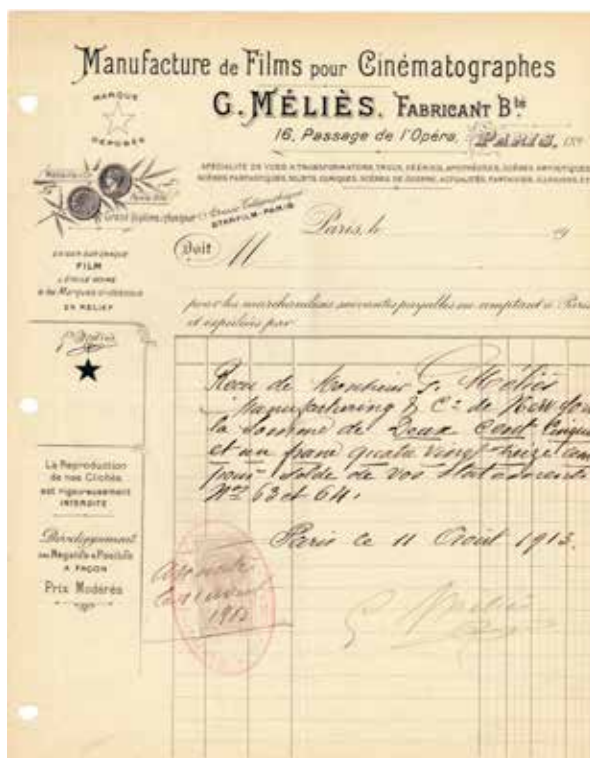 Manufacture de Films pour Cinématographes
G. MÉLIÈS, FABRICANT Bté
16, Passage de l'Opéra, PARIS, 189
MARQUE
DÉPOSÉE
SPÉCIALITÉ DE VUES A TRANSFORMATIONS, TRUCS, FÉERIES, APOTHÉOSES, SCÈNES ARTISTIQUES
SCÈNES FANTASTIQUES, SUJETS COMIQUES, SCÈNES DE GUERRE, ACTUALITÉS, FANTAISIES, ILLUSIONS, ETC
Grand Diplôme d'honneur
Adresse Télégraphique
STARFILM-PARIS
Paris, le 19
Doit M
EXIGER SUR CHAQUE
FILM
L'ÉTOILE NOIRE
& les Marques ci-dessous
EN RELIEF
pour les marchandises suivantes payables au comptant à Paris
et expédiées par
G. Méliès
Reçu de Monsieur G. Méliès
Manufacturing & Co de New York
la somme de Deux Cent Cinqu
et un franc quatre vingt treize cen
pour solde de vos Statements
Nos 63 et 64.
La Reproduction
de nos Clichés
est rigoureusement
INTERDITE
Paris ce 11 Août 1913.
Développement
des Négatifs & Positifs
A FAÇON
Prix Modérés
G. Méliès